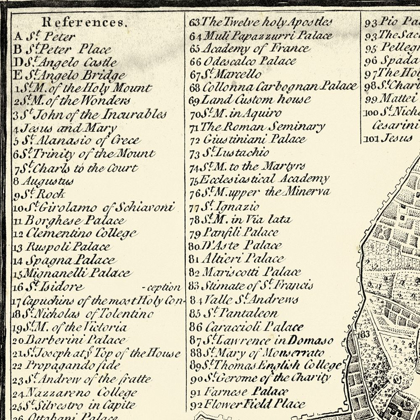 References.
A St. Peter
B St. Peter Place
D St. Angelo Castle
E St. Angelo Bridge
1 St. M. of the Holy Mount
2 St. M. of the Wonders
3 St. John of the Incurables
4 Jesus and Mary
5 St. Alanasio of Grece
6 St. Trinity of the Mount
7 St. Charls to the Court
8 Augustus
9 St. Rock
10 St. Girolamo of Schiavoni
11 Borghese Palace
12 Clementino College
13 Ruspoli Palace
14 Spagna Palace
15 Mignanelli Palace
16 St. Isidore -ception
17 Capuchins of the most Holy Con-
18 St. Nicholas of Tolentino
19 St. M. of the Victoria
20 Barberini Palace
21 St. Joseph at ye Top of the House
22 Propagando fide
23 St. Andrew of the fratte
24 Nazzareno College
25 St. Silvestro in Capite
63 The Twelve holy Apostles
64 Muli Papazzurri Palace
65 Academy of France
66 Odescalco Palace
67 St. Marcello
68 Collonna Carbognan Palace
69 Land Custom house
70 St. M. in Aquiro
71 The Roman Seminary
72 Giustiniani Palace
73 St. Eustachio
74 St. M. to the Martyrs
75 Ecclesiastical Academy
76 St. M. upper the Minerva
77 St. Ignazio
78 St. M. in Via lata
79 Panfili Palace
80 D'Aste Palace
81 Altieri Palace
82 Mariscotti Palace
83 Stimate of St. Francis
84 Valle St. Andrews
85 St. Pantaleon
86 Caraccioli Palace
87 St. Lawrence in Domaso
88 St. Mary of Monserrato
89 St. Thomas English College
90 St. Gerome of the Charity
91 Farnese Palace
92 Flower Field Place
93 Pio
93 The
95
96 Spada
97 The
98 St.
99 Mattei
100 St.
Cesarini
101 Jesus